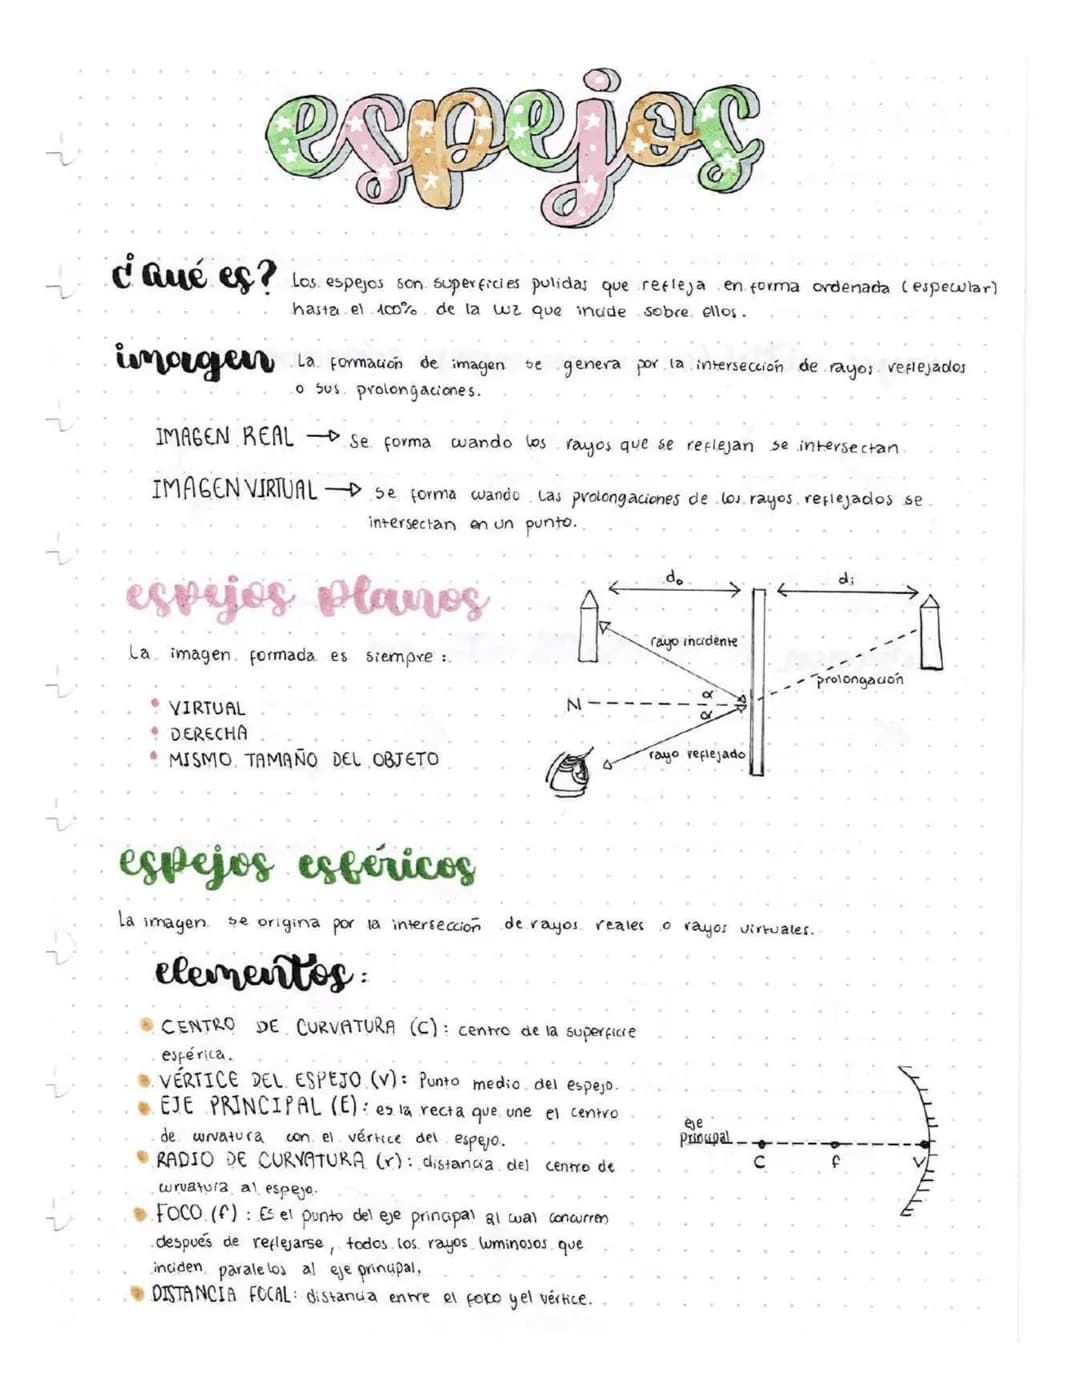 espejos
¿Qué es? Los espejos son superficies pulidas que refleja en forma ordenada (especular)
hasta el 100% de la luz que incide sobre ellos.
imagen La formación de imagen se genera por la intersección de rayos reflejados
o sus prolongaciones.
IMAGEN REAL → Se forma cuando los rayos que se reflejan se intersectan.
IMAGEN VIRTUAL → Se forma cuando las prolongaciones de los rayos reflejados se
intersectan en un punto.
espejos planos
La imagen formada es siempre:
• VIRTUAL
• DERECHA
• MISMO TAMAÑO DEL OBJETO
do
di
rayo incidente
prolongación
N
α
α
rayo reflejado
espejos esféricos
La imagen se origina por la intersección de rayos reales o rayos virtuales.
elementos:
• CENTRO DE CURVATURA (C): centro de la superficie
esférica.
• VÉRTICE DEL ESPEJO (V): Punto medio del espejo.
• EJE PRINCIPAL (E): es la recta que une el centro
de curvatura con el vértice del espejo.
• RADIO DE CURVATURA (r): distancia del centro de
curvatura al espejo.
• FOCO (f): Es el punto del eje principal al cual concurren
después de reflejarse, todos los rayos luminosos que
inciden paralelos al eje principal,
• DISTANCIA FOCAL: distancia entre el foco y el vértice.
eje
principal
C
f
V